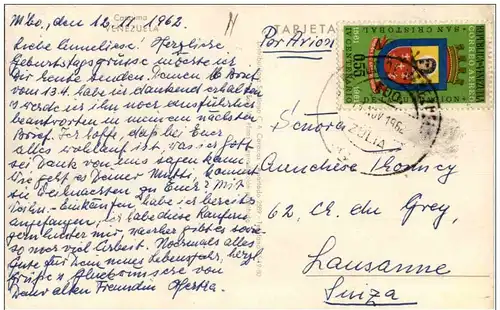 M'bo, den 12. XI. 1962.
Liebe Anneliese! Herzliche
Geburtstagsgrüsse möchte ich
Dir heute senden. Deinen Brief
vom 13.4. habe ich dankend erhalten
werde ich ihn noch ausführlich
beantworten in meinem nächsten
Brief. Ich hoffe, daß bei Euch
alles wohlauf ist, was ich gott
sei Dank von uns sagen kann.
Wie geht es Deiner Mutti, kommt
sie Weihnachten zu Euch? Mit
Weihn.-Einkäufen habe ich bereits
angefangen, ich habe diese Kauferei
gern hinter mir, vorher gibt es sowie-
so noch viel Arbeit. Nochmals alles
Gute für Dein neues Lebensjahr, herzl.
Grüße u. Glückwünsche von
Deiner alten Freundin Hertha
VENEZUELA
TARJETA
Por Avion
REPUBLICA DE VENEZUELA
CORREO AEREO
SAN CRISTOBAL
IV CENTENARIO
1561
1961
0,55
NOV 1962
ZULIA
Señora
Anneliese Thomcy
62, Ch. du Grey,
Lausanne
Suiza